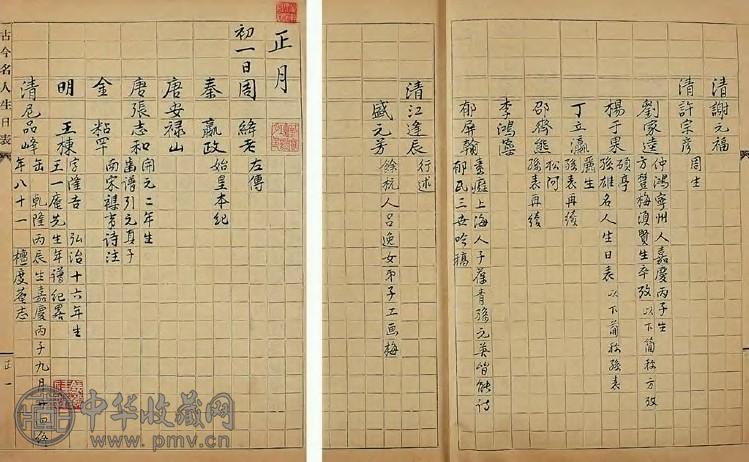 正月
初一日周 絳老 左傳
秦 嬴政 始皇本紀
唐安禄山
唐張志和 開元二年生
畫譜引元真子
金 粘罕 南宋襍事诗注
明 王棟 字隆吉 弘治十六年生
王一庵先生年譜纪畧
清尼品峰 乾隆丙辰生嘉慶丙子九月
年八十一 檀度菴志
古今名人生日表
正一
清謝元福
清許宗彦 周生
劉家逵 仲鴻 州人嘉慶丙子生
方豐梅滇賢生卒攷以下简称方攷
楊于果 碩亭
孫雄名人生日表以下简称孫表
丁立瀛 麗生
孫表再後
邵 熊 松阿
孫表再後
李鴻
郁屏翰 素癡上海人子葆青孫元英皆能诗
郁氏三世吟稿
清江逢辰 行述
盛元芳 餘杭人吕逸女弟子工画梅
中华收藏网
www.pmv.cn